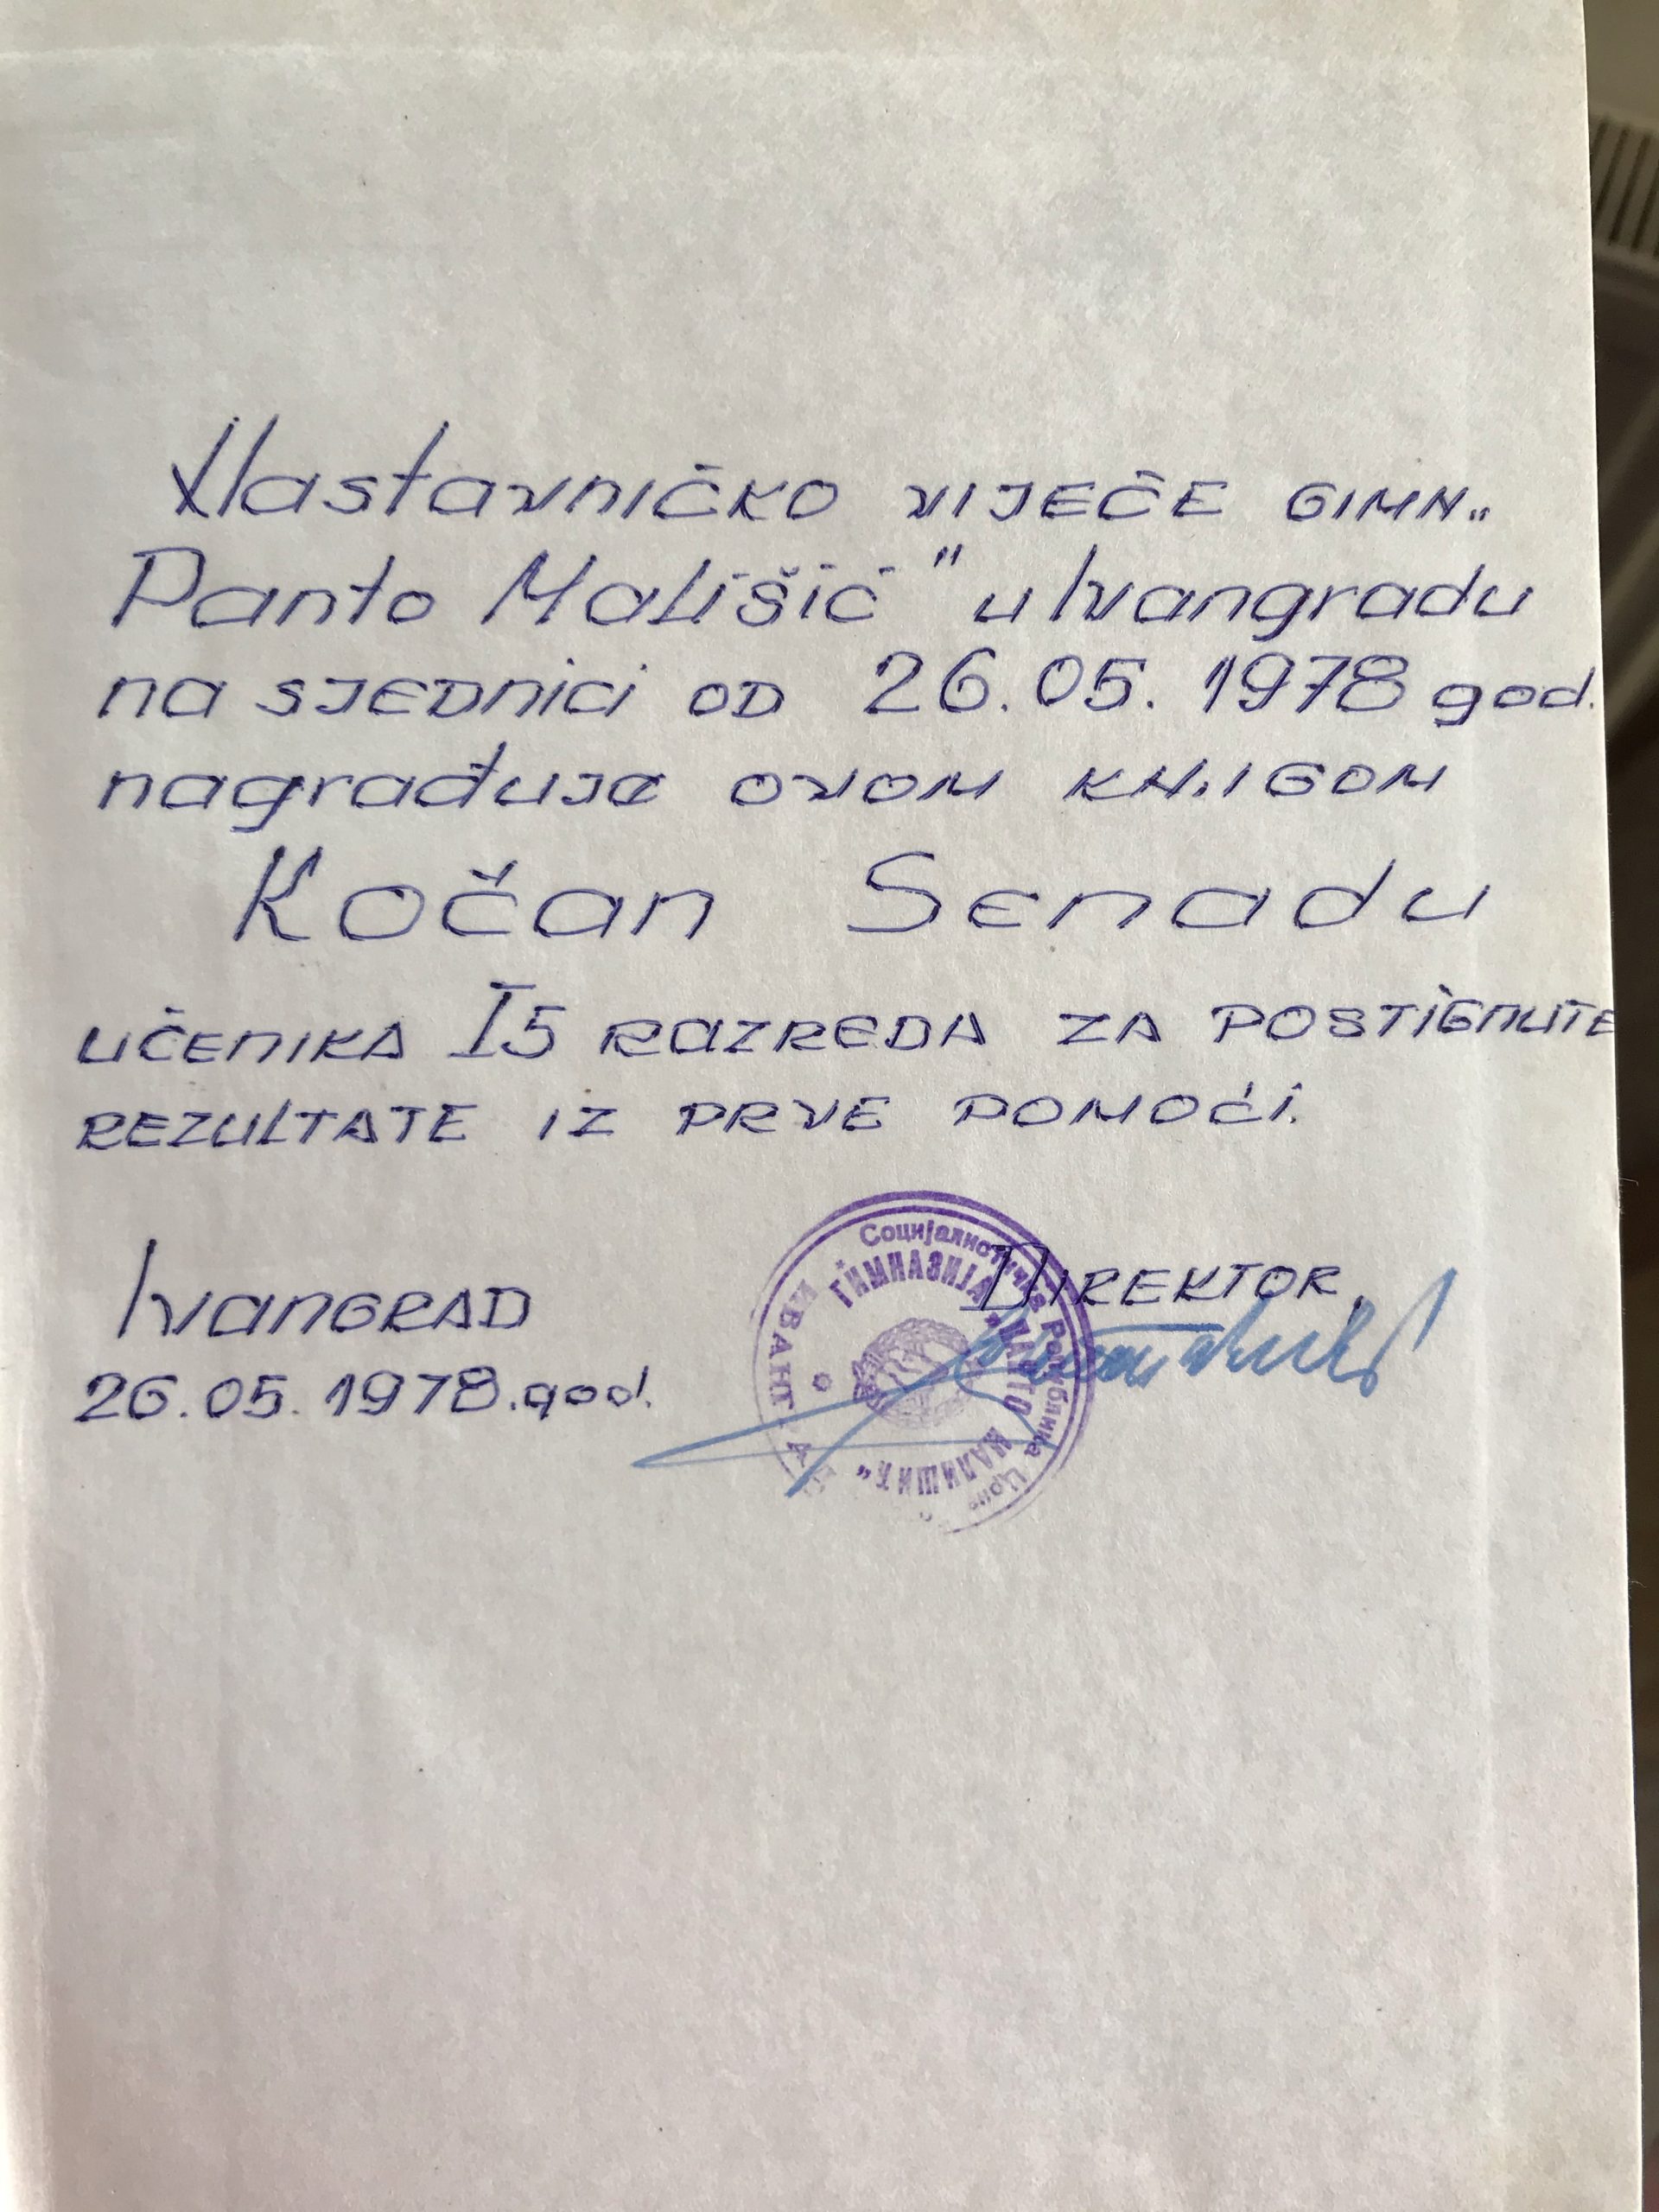 Nastavničko vijeće GIMN„
Panto Mališić" u Ivangradu
na sjednici od 26.05.1978 god.
nagrađuje ovom knjigom
Kočan Senadu
učenika I5 razreda za postignute
rezultate iz prve pomoći.
Социјалистичка Република Црн
ГИМНАЗИЈА „ПАНТО МАЛИШИЋ"
DIREKTOR,
Ivangrad
26.05.1978.god.